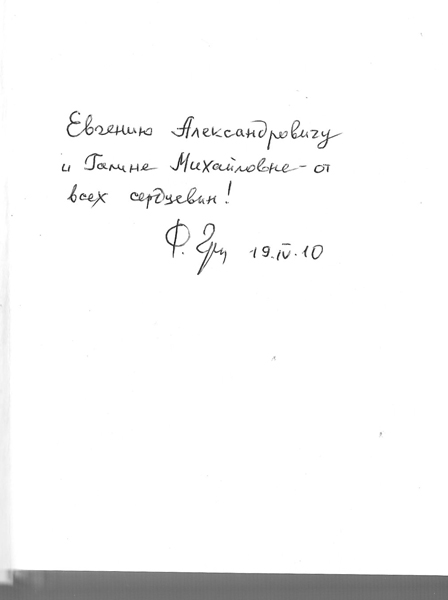 Евгению Александровичу
и Галине Михайловне - от
всех сердцевин!
Ф. Гри 19.IV.10